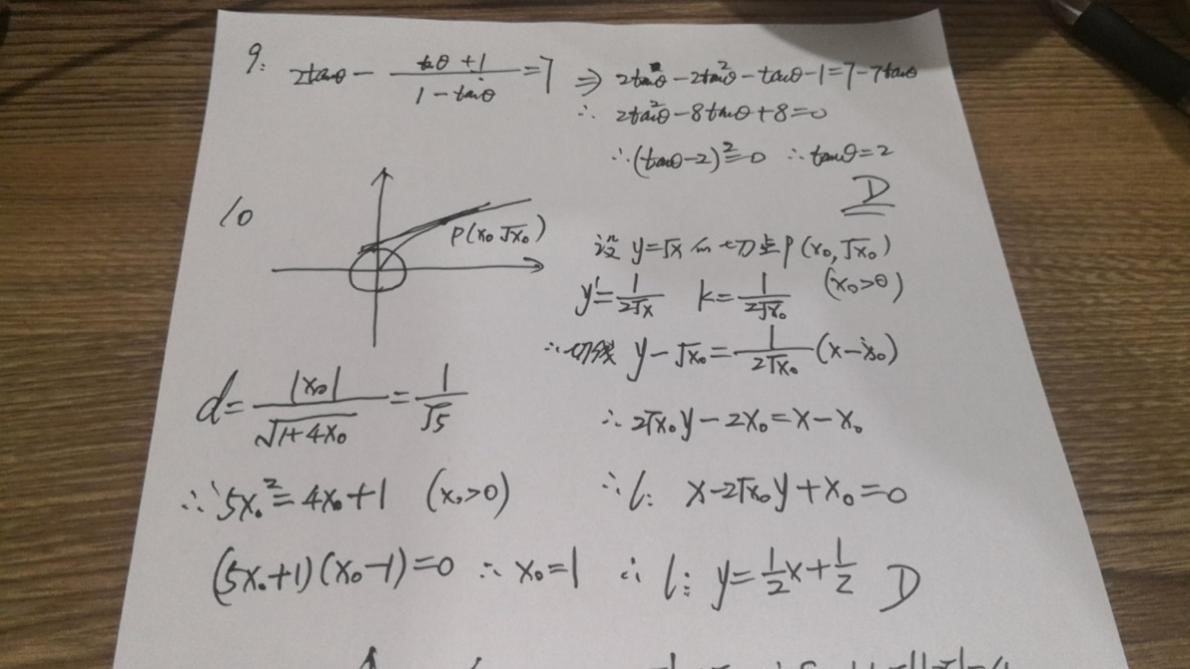 9: 2tanθ - (tanθ+1)/(1-tanθ) = 7 ⇒ 2tanθ-2tan²θ-tanθ-1=7-7tanθ
∴ 2tan²θ-8tanθ+8=0
∴(tanθ-2)²=0 ∴tanθ=2
D
10
P(x₀ √x₀)
设 y=√x 的切点P(x₀,√x₀)
y'=1/(2√x) k=1/(2√x₀) (x₀>0)
∴切线 y-√x₀=1/(2√x₀)(x-x₀)
∴2√x₀y-2x₀=x-x₀
∴l: x-2√x₀y+x₀=0
d=|x₀|/√(1+4x₀)=1/√5
∴5x₀²=4x₀+1 (x₀>0)
(5x₀+1)(x₀-1)=0 ∴x₀=1 ∴l: y=1/2x+1/2 D